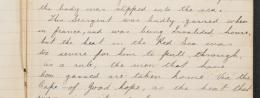 the body was slipped into the sea.
This Sergeant was badly gassed when
in france, and was being invalided home,
but the heat in the Red Sea was
to severe for him to pull through,
as a rule, the men that have
been gassed are taken home Via the
Cape of Good hope, as the heat that